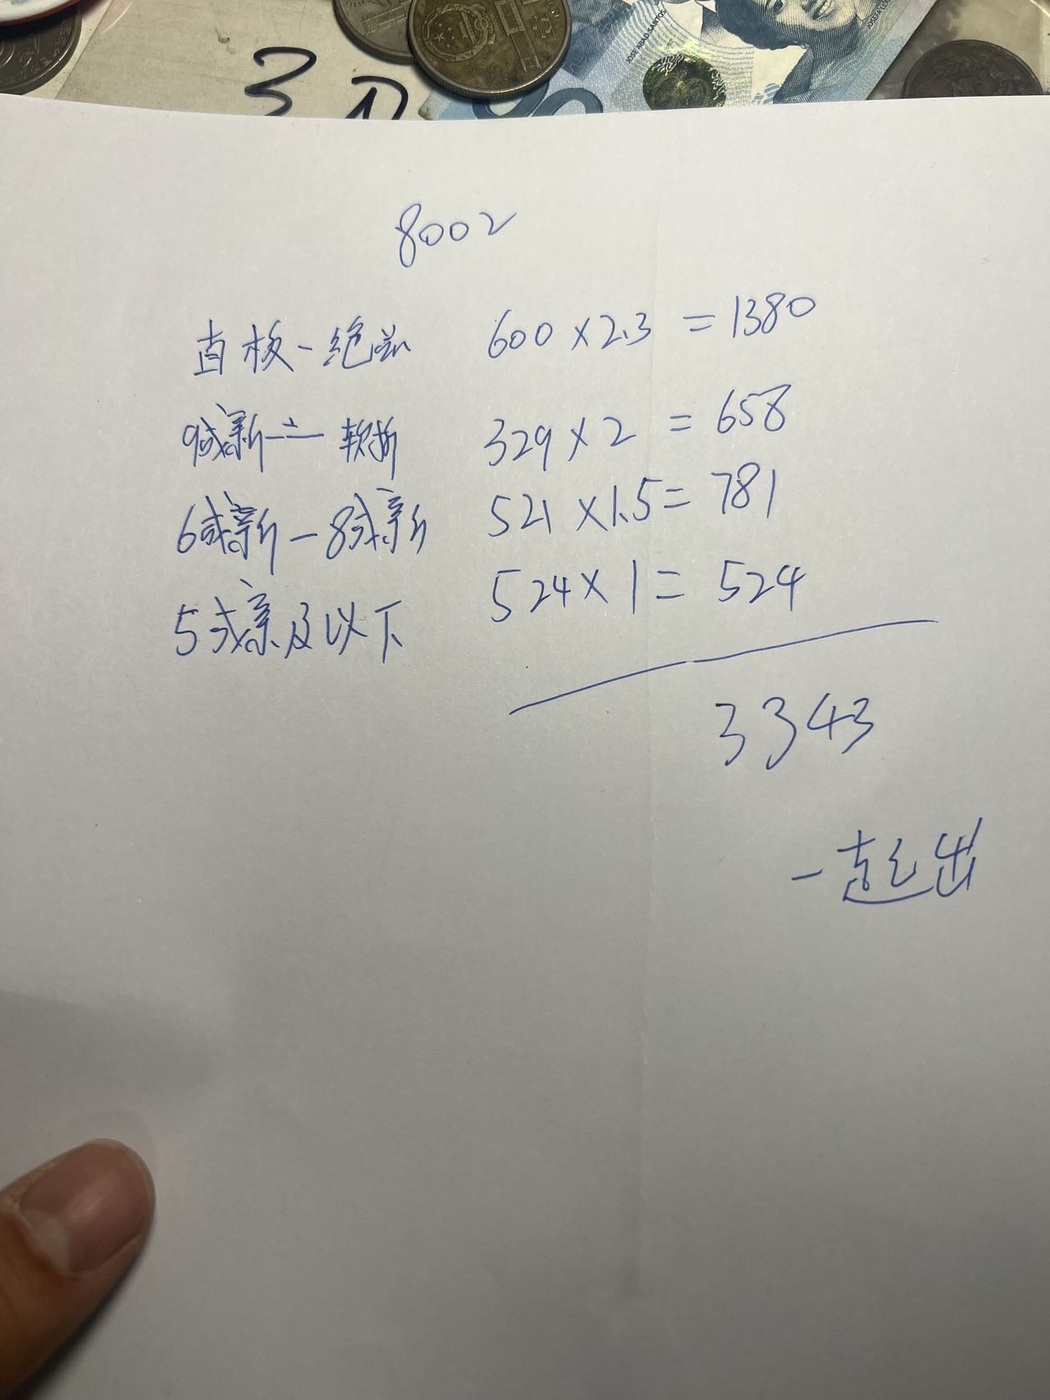 3 D
8002
直板-绝品 600×2.3=1380
9成新 - 软折 329×2=658
6成新-8成新 521×1.5=781
5成新及以下 524×1=524
3343
一起出